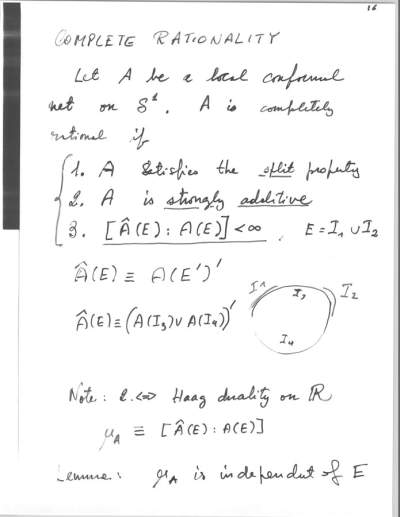 16
COMPLETE RATIONALITY
Let A be a local conformal
net on S¹. A is completely
rational if
1. A satisfies the split property
2. A is strongly additive
3. [Â(E) : A(E)] < ∞ , E = I₁ ∪ I₂
Â(E) ≡ A(E')'
Â(E) ≡ (A(I₃) ∨ A(I₄))'
I₁ I₃ I₂
I₄
Note: 2. ⇔ Haag duality on ℝ
μ_A ≡ [Â(E) : A(E)]
Lemma: μ_A is independut of E